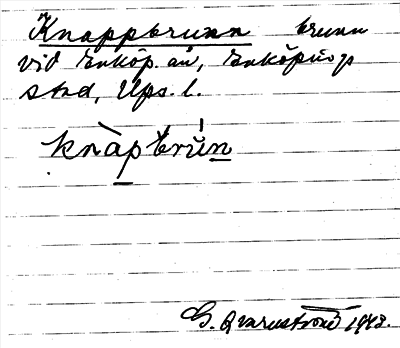 Knappbrunn brunn
vid Enköp. ån, Enköpings
stad, Ups. l.
knàpbrùn
G. Qvarnström 1943.